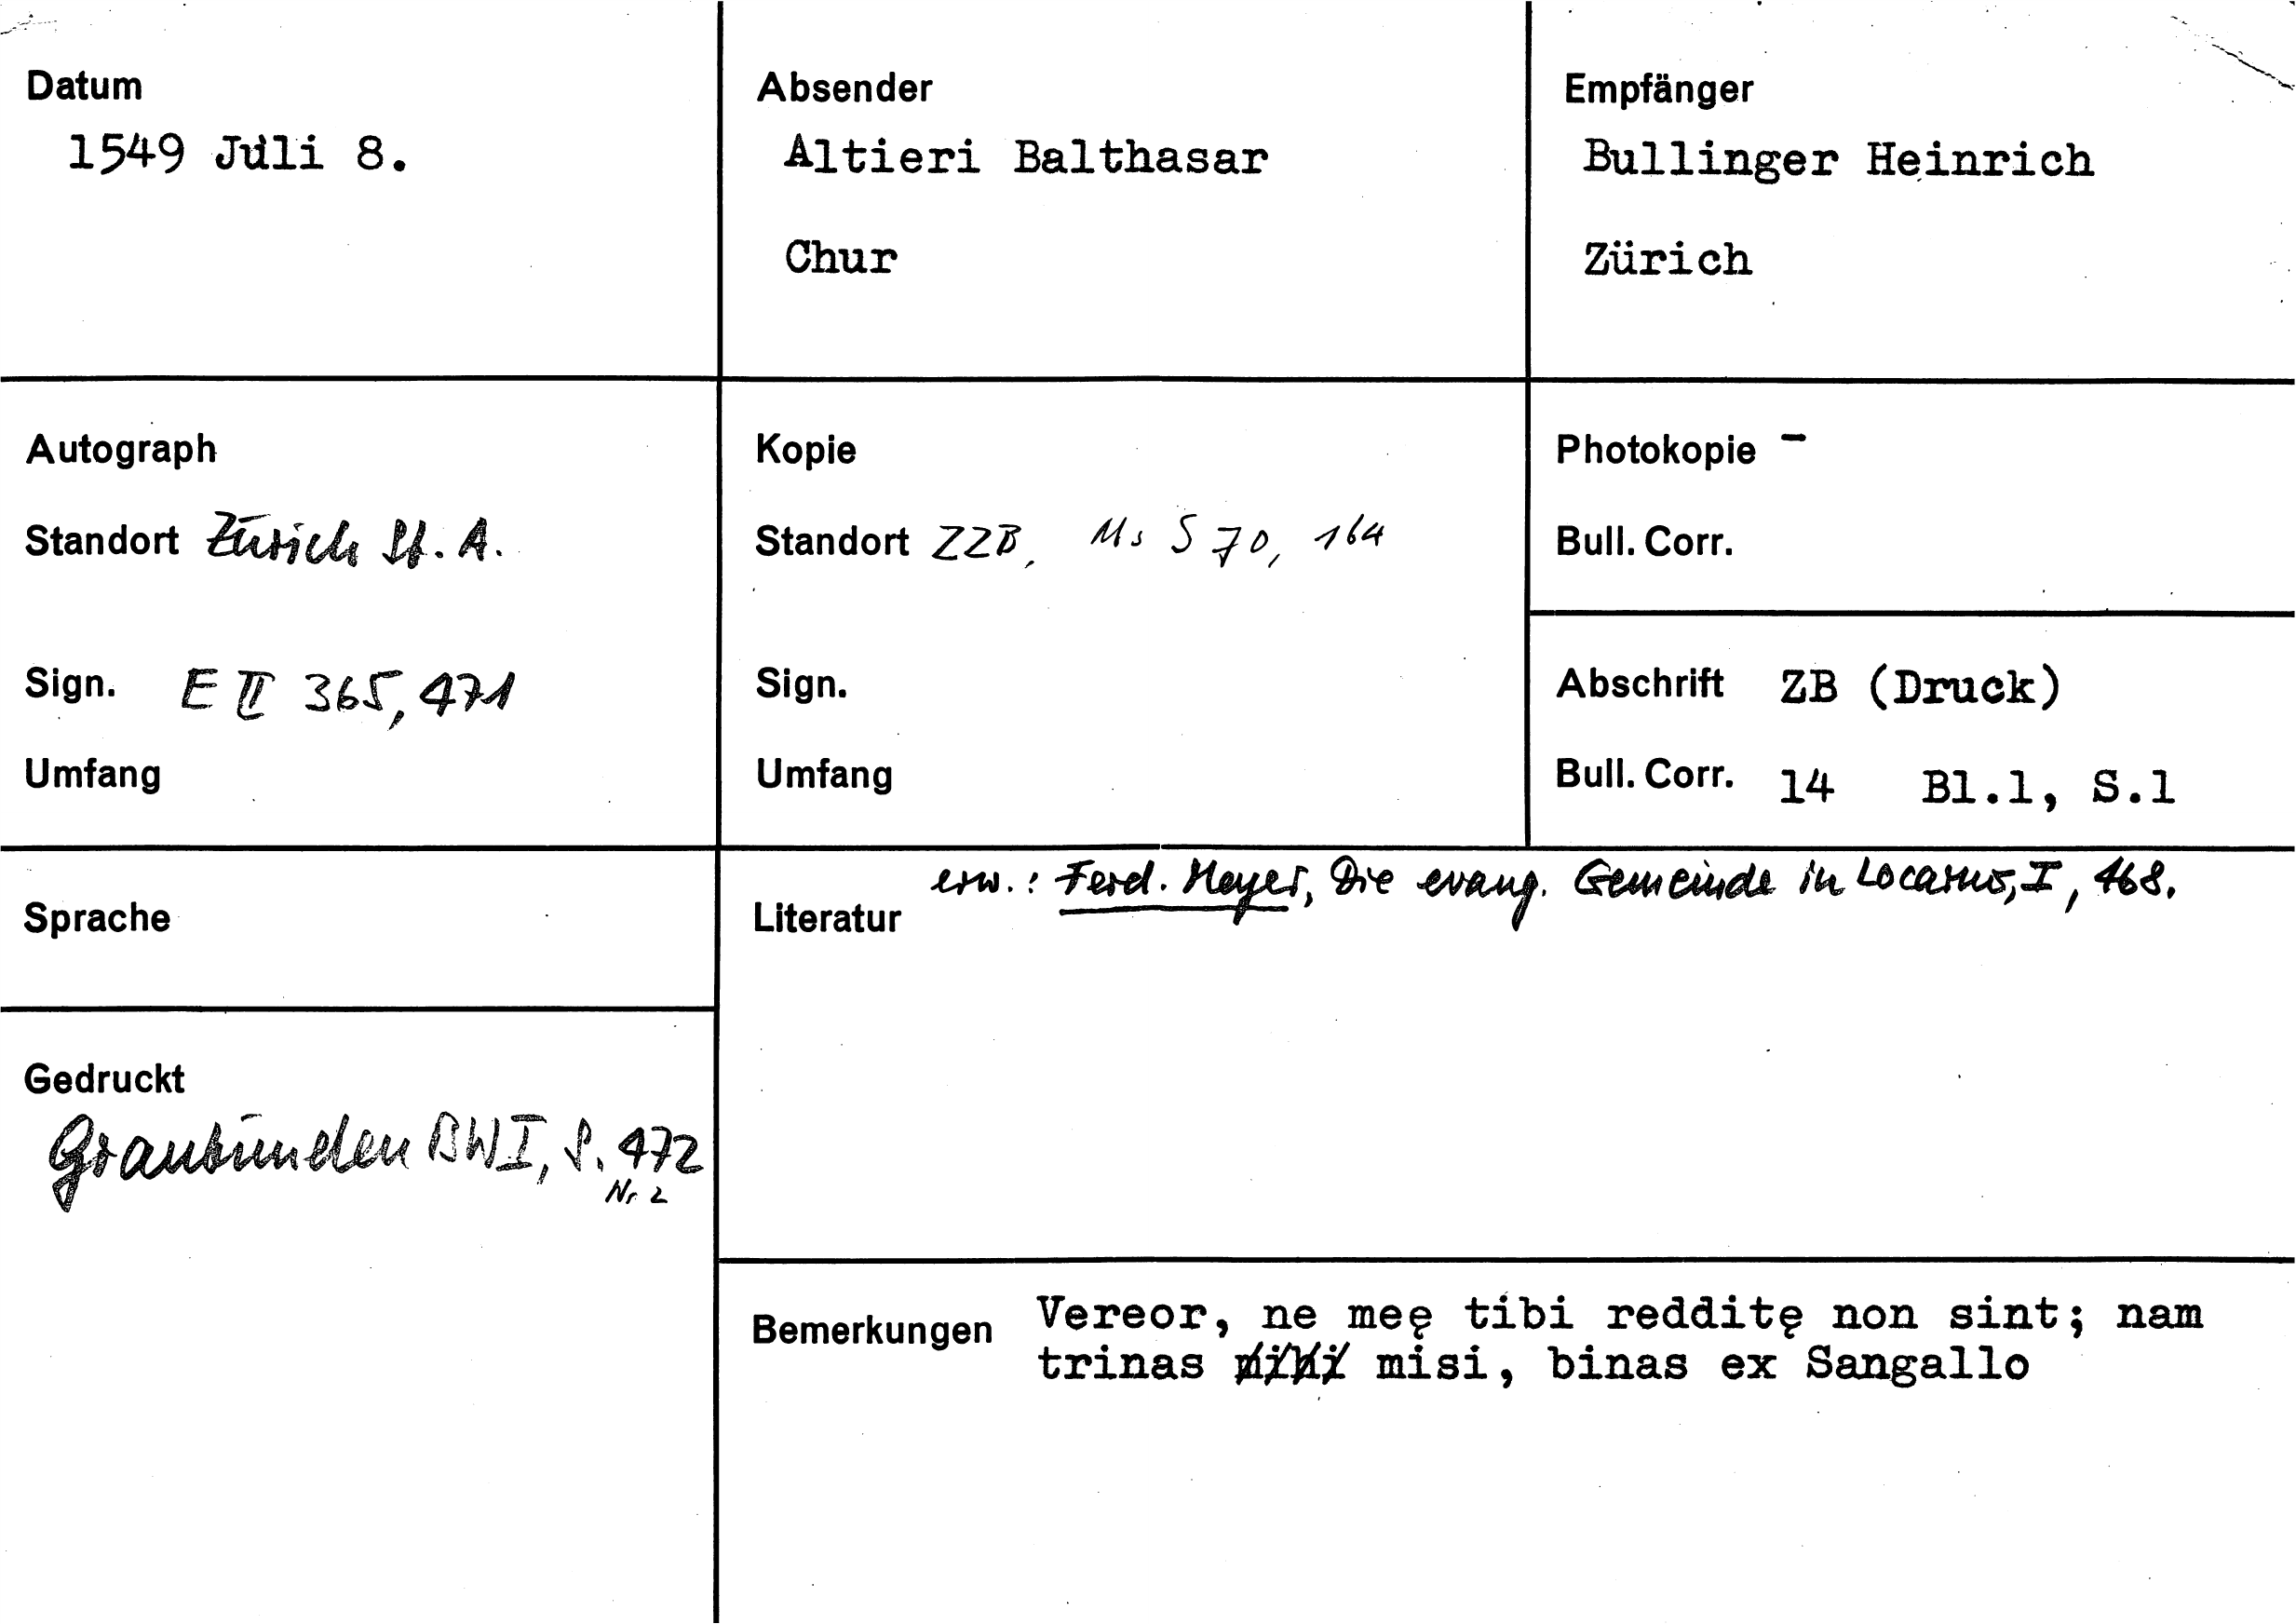 Datum
1549 Juli 8.
Absender
Altieri Balthasar
Chur
Empfänger
Bullinger Heinrich
Zürich
Autograph
Standort Zürich St. A.
Sign. E II 365, 471
Umfang
Kopie
Standort ZZB, Ms S 70, 164
Sign.
Umfang
Photokopie -
Bull. Corr.
Abschrift ZB (Druck)
Bull. Corr. 14 Bl.1, S.1
Sprache
Gedruckt
Graubünden BW I, S. 472
Nr. 2
Literatur erw.: Ferd. Meyer, Die evang. Gemeinde in Locarno, I, 168.
Bemerkungen Vereor, ne meę tibi redditę non sint; nam
trinas misi, binas ex Sangallo